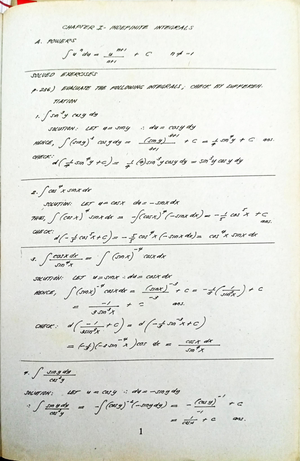 CHAPTER I - INDEFINITE INTEGRALS
A. POWERS
∫ uⁿ du = uⁿ⁺¹/n+1 + C n ≠ -1
SOLVED EXERCISES
EVALUATE THE FOLLOWING INTEGRALS, CHECK BY DIFFEREN-
TIATION
1. ∫ sin³y cosy dy
SOLUTION: LET u = siny ∴ du = cosy dy
HENCE,
CHECK:
2. ∫ cos⁴x sinx dx
SOLUTION: LET u = cosx du = -sinx dx
THEN, ∫ (cosx)⁴ sinx dx = -∫(cosx)⁴(-sinx dx) = -1/5 cos⁵x + C
ans.
CHECK:
d(-1/5 cos⁵x + C) = -5/5 cos⁴x (-sinx dx) = cos⁴x sinx dx
3. ∫ cosx dx/sin⁴x = ∫ (sinx)⁻⁴ cosx dx
SOLUTION: LET u = sinx ∴ du = cosx dx
HENCE, ∫ (sinx)⁻⁴ cosx dx = (sinx)⁻³/-3 + C = -1/3(1/sin³x) + C
= -1/3sin³x + C ans.
CHECK: d(-1/3sin³x + C) = d(-1/3 sin⁻³x + C)
= (-1/3)(-3 sin⁻⁴x) cosx dx = cosx dx/sin⁴x
4. ∫ siny dy/cos²y
SOLUTION: LET u = cosy ∴ du = -siny dy
∴ ∫ siny dy/cos²y = -∫(cosy)⁻²(-siny dy) = -(cosy)⁻¹/-1 + C
ans.
1